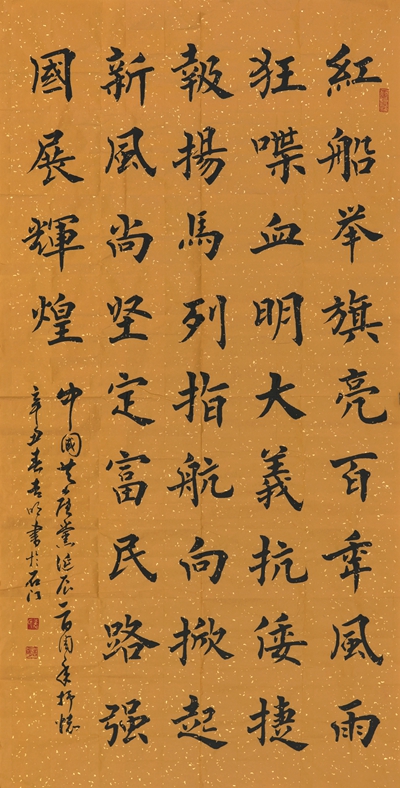 紅船举旗亮百年風雨
狂喋血明大義抗倭捷
報揚馬列指航向掀起
新風尚坚定富民路强
國展輝煌
中國共産黨誕辰一百周年抒懷
辛丑春吉明書於石江